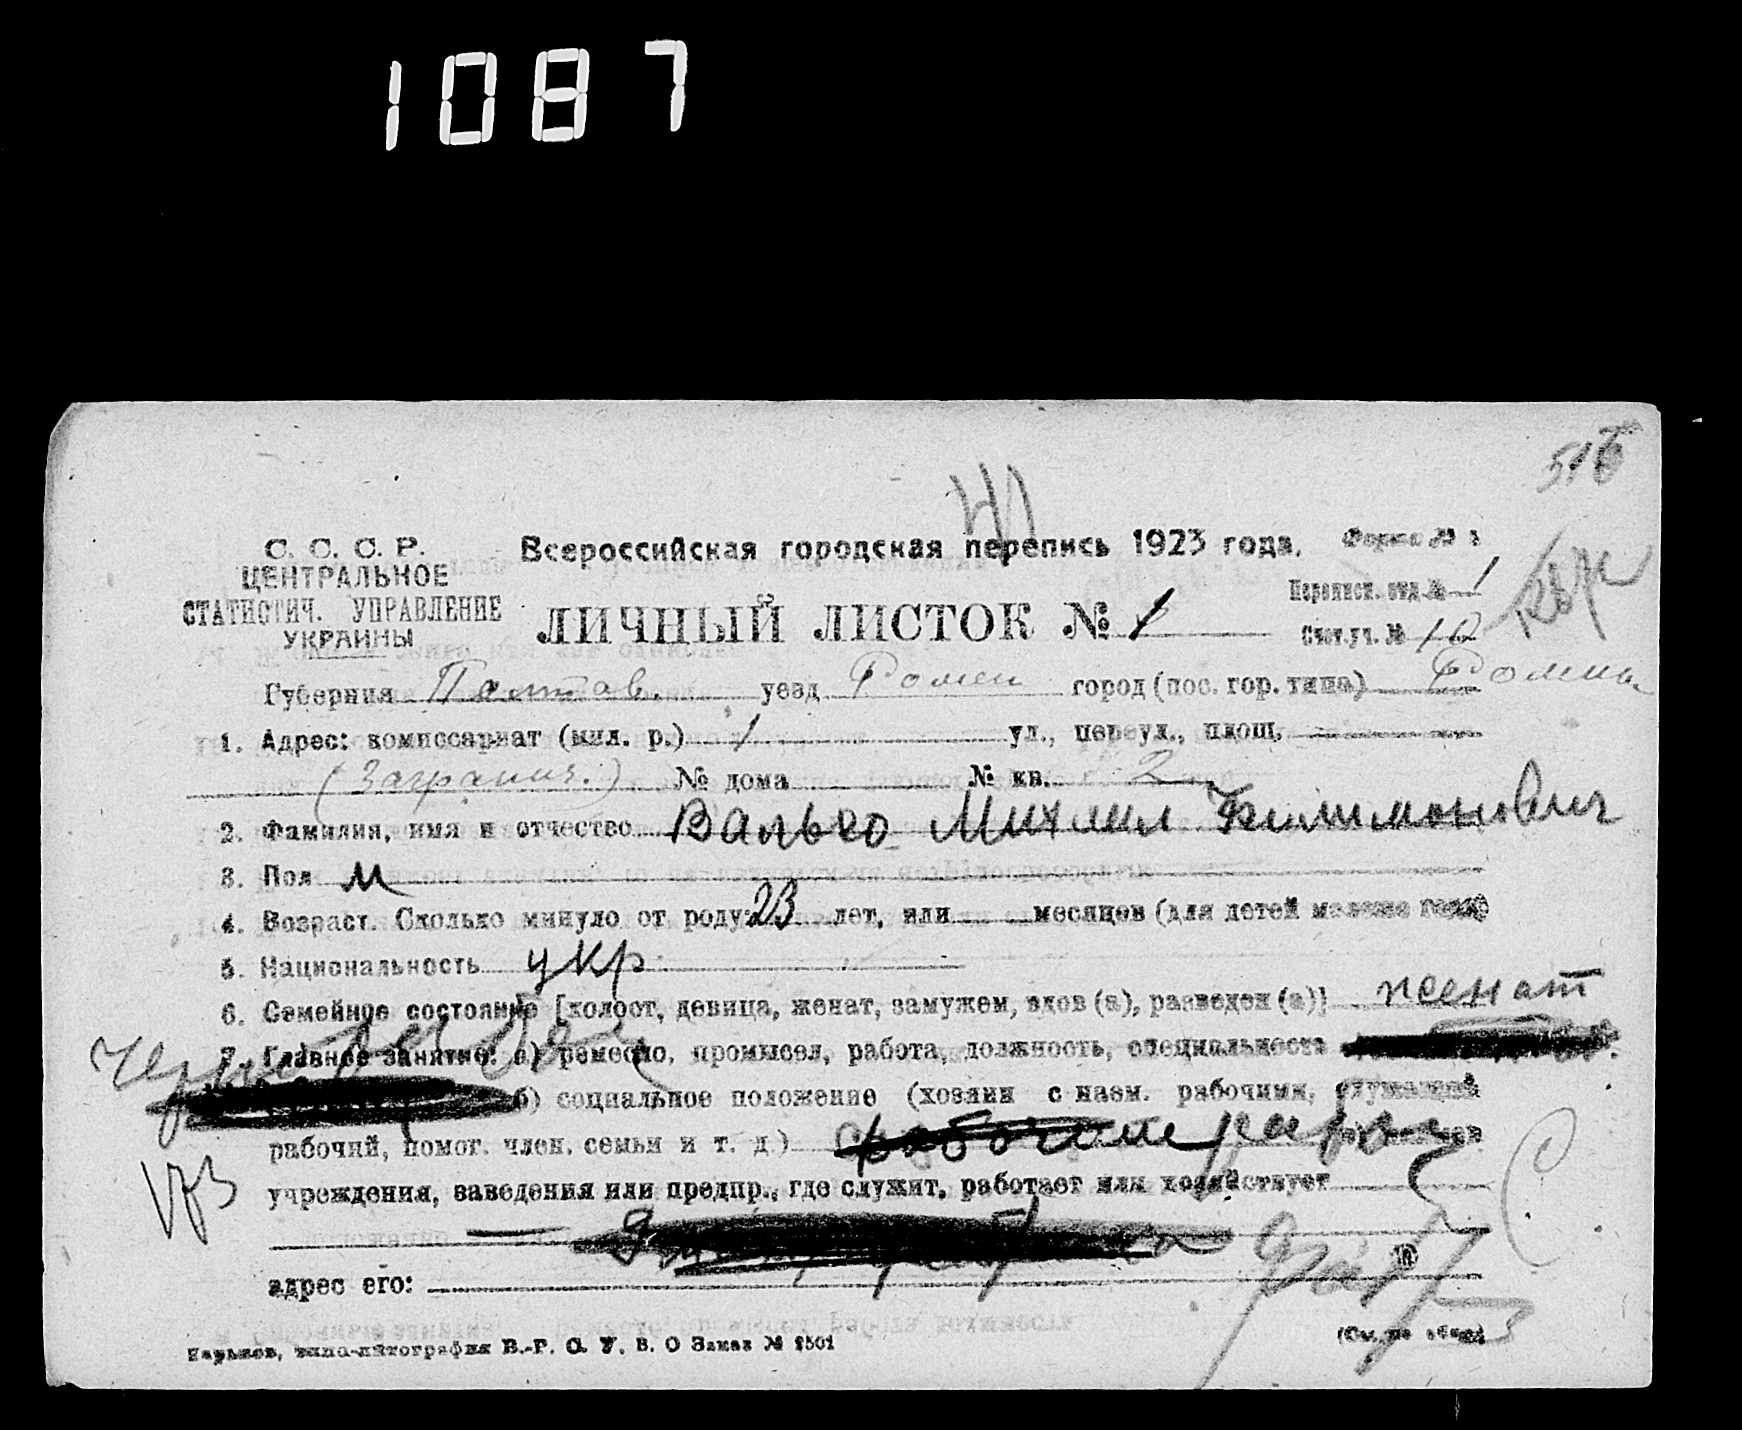 1087
516
41
С. С. С. Р.
ЦЕНТРАЛЬНОЕ
СТАТИСТИЧ. УПРАВЛЕНИЕ
УКРАИНЫ
Всероссийская городская перепись 1923 года.
Форма № 1
ЛИЧНЫЙ ЛИСТОК № 1
Переписн. отд. № 1
Счет. уч. № 10
Губерния Полтав. уезд Ромен город (пос. гор. типа) Ромны
1. Адрес: комиссариат (мил. р.) 1 ул., переул., площ.
(Загранич.) № дома № кв. 2
2. Фамилия, имя и отчество Валько Михаил Филимонович
3. Пол М
4. Возраст. Сколько минуло от роду: 23 лет, или месяцев (для детей моложе года)
5. Национальность укр
6. Семейное состояние [холост, девица, женат, замужем, вдов (а), разведен (а)] женат
7. Главное занятие: а) ремесло, промысел, работа, должность, специальность
б) социальное положение (хозяин с наем. рабочими, служащий
рабочий, помог. член. семьи и т. д.)
учреждения, заведения или предпр., где служит, работает или хозяйствует
адрес его:
Харьков, типо-литография В.-Р. С. У. В. О Заказ № 1501
(См. на обор.)